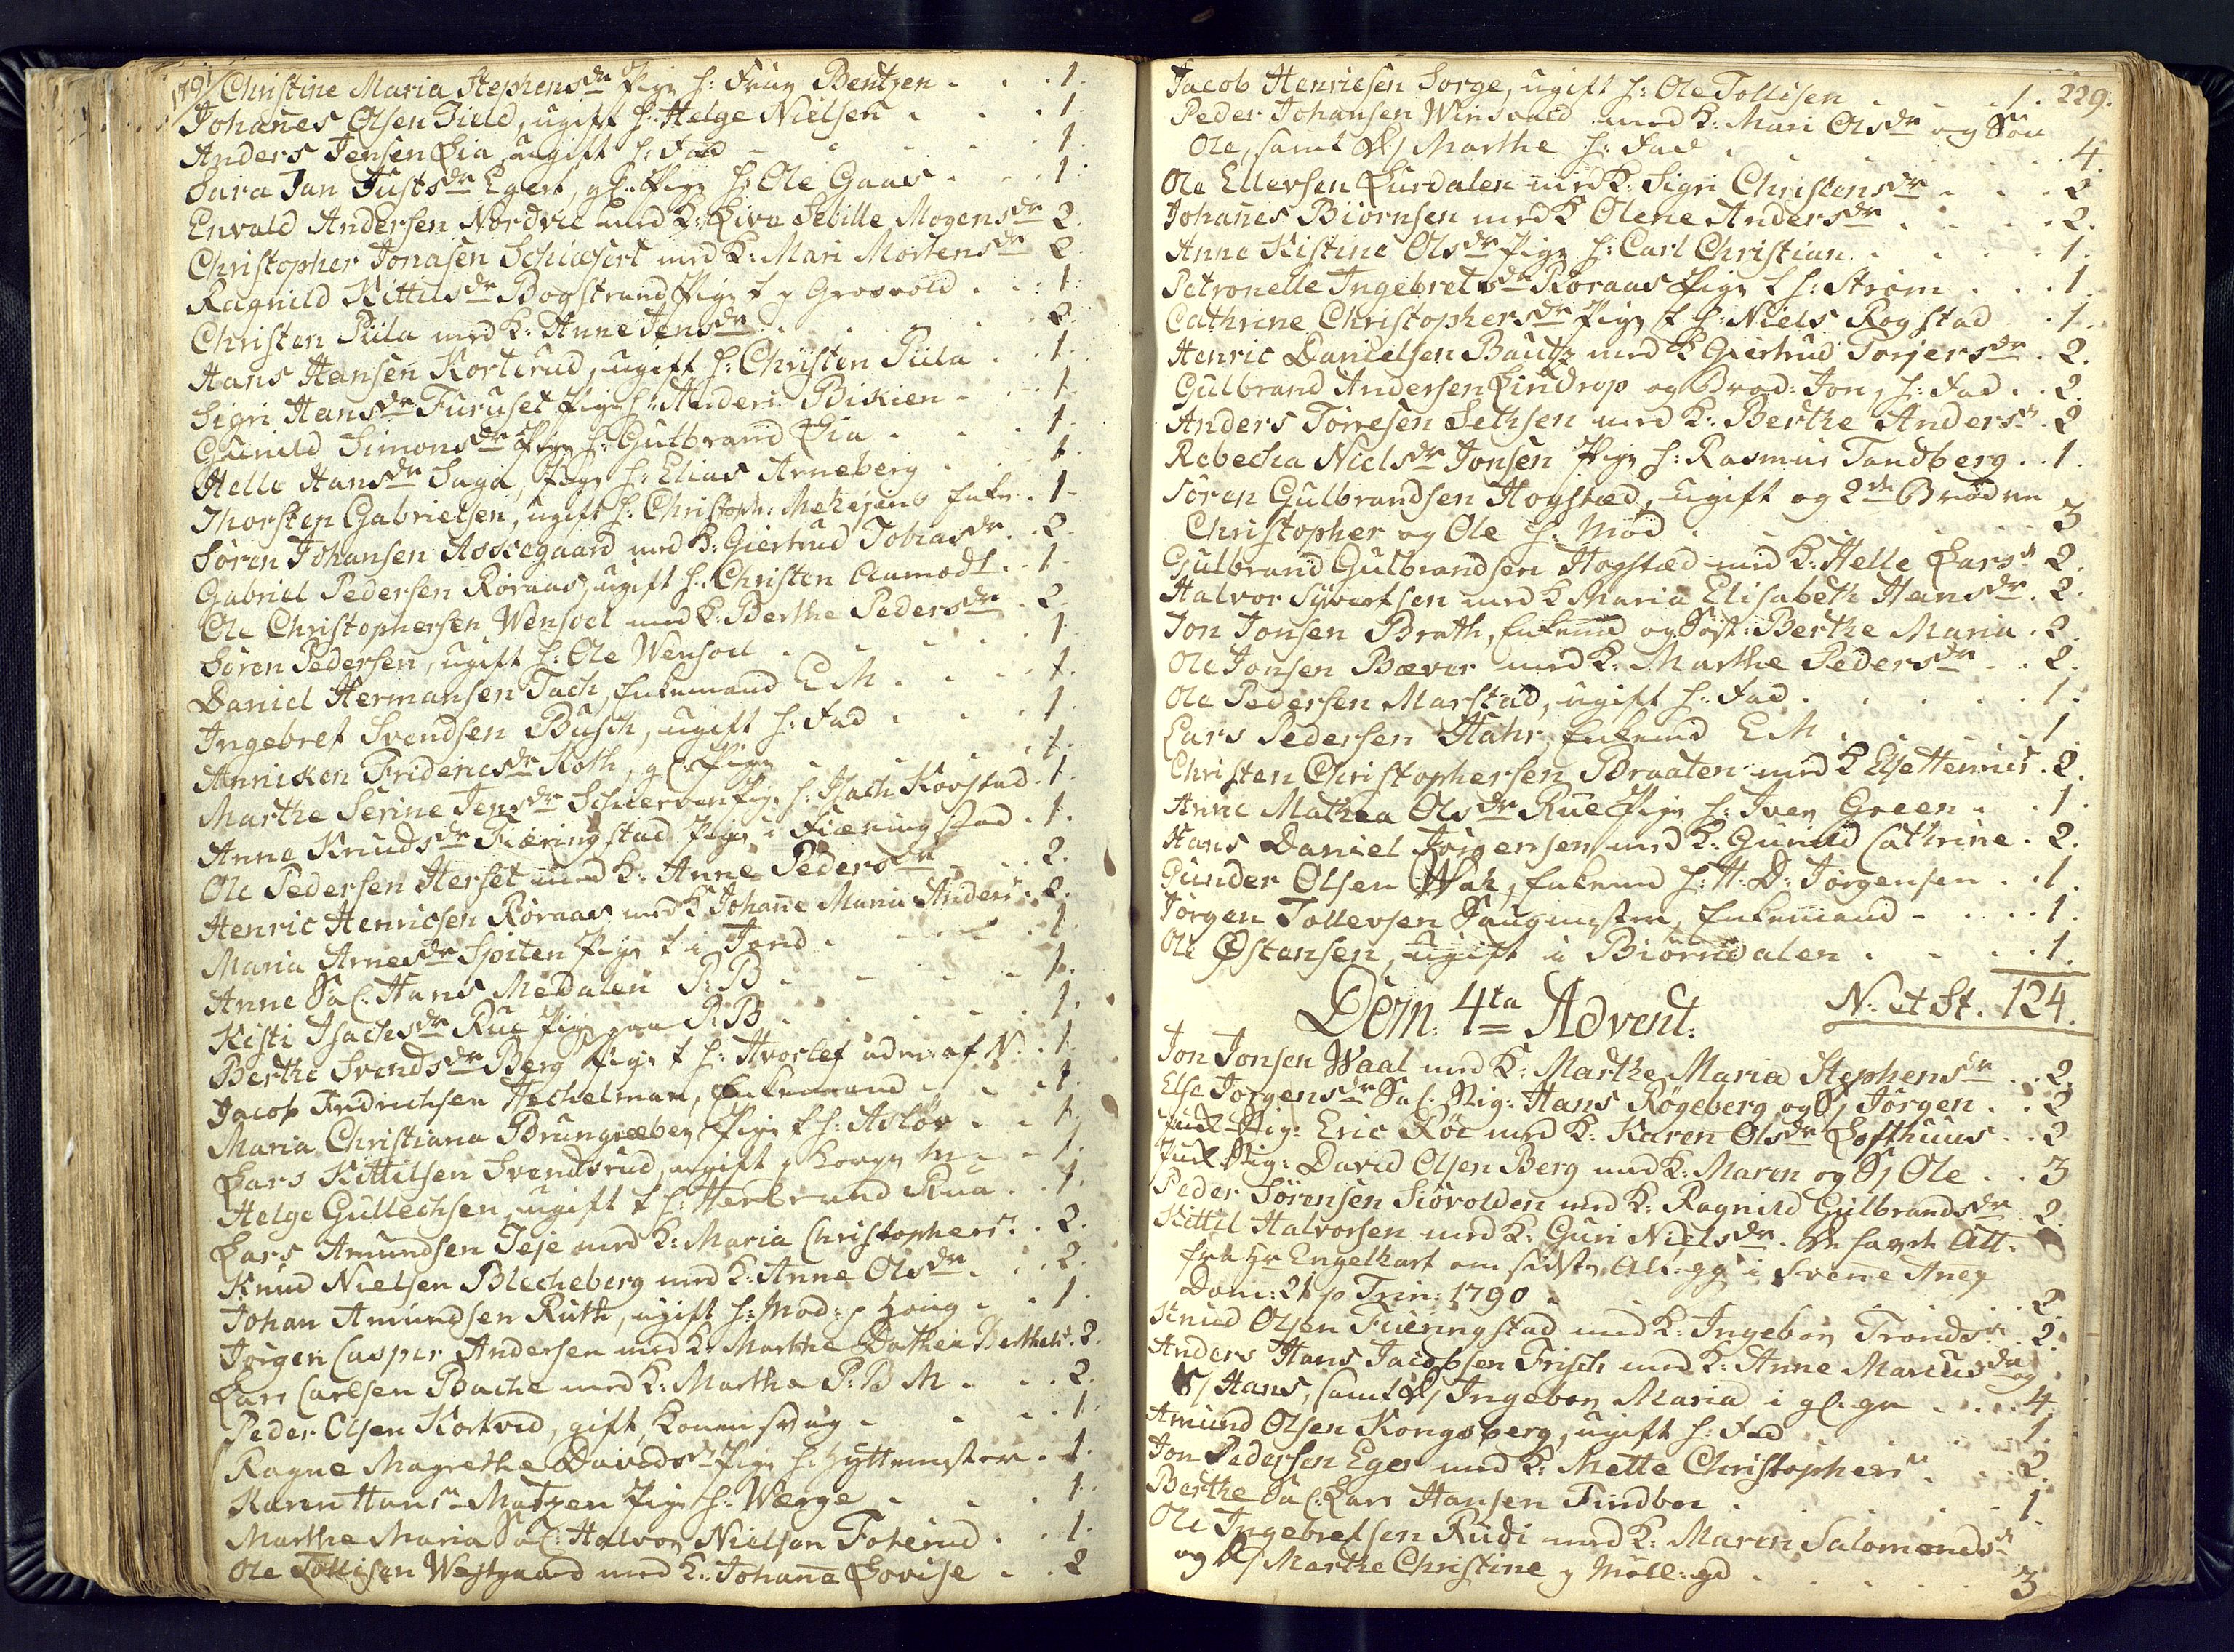 1791
Christine Maria Stephensdr Pige h: Frue Bentzen . . . 1.
Johan̄es Olsen Field, ugift h: Helge Nielsen . . . 1.
Anders Jensen Lia, ugift h: Fad . . . 1.
Sara Jan Justsdr Egert, gl. Pige h: Ole Gaas . . . 1.
Envald Andersen Nordvic med K: Liva Sebille Mogensdr 2.
Christopher Jonasen Schiæsert med K: Mari Mortensdr 2.
Ragnild Kittilsdr Bogstrand Pige t p Grosvold . . . 1.
Christen Piila med K: Anne Jensdr . . . 2.
Hans Hansen Korterud, ugift h: Christen Piila . . 1.
Sigri Hansdr Furuset Pige h: Anders Bikien . . . 1
Gunild Simonsdr Pige h: Gulbrand Lia . . . 1.
Helle Hansdr Saga, Pige h: Elias Arneberg . . . 1.
Thorsten Gabrielsen, ugift h: Christoph: Mehejens Enke . 1.
Søren Johansen Aossegaard med K: Giertrud Tobiasdr . 2.
Gabriel Pedersen Røraas, ugift h: Christen Aamodt . . 1
Ole Christophersen Wensoel med K: Berthe Pedersdr . 2.
Søren Pedersen, ugift h: Ole Wensoel . . . 1.
Daniel Hermansen Tach, Enkemand E M . . . 1.
Ingebret Svendsen Busch, ugift h: Fad . . . 1.
Anniken Fridericsdr Koth, gl. Pige . . . 1.
Marthe Serine Jensdr Schierven Pige h: Isach Kovstad . 1.
Anne Knudsdr Fiæringstad Pige i Fiæringstad . 1.
Ole Pedersen Herset med K: Anne Pedersdr . . . 2.
Henric Henricsen Røraas med K Johan̄e Maria Anders: . 2.
Maria Arnesdr Spiten Pige t i Jond . . . 1.
Anne Sal. Hans Medalen P: B . . . 1.
Kisti Isachsdr Rue Pige paa P: B . . . 1.
Berthe Svendsdr Berg Pige t h: Hvoslef udm: af N: . 1.
Jacob Fredrichsen Hechelman, Enkemand . . . 1.
Maria Christiana Brungræber Pige t h: Asløv . . 1.
Lars Kittilsen Svendsrud, ugift . . . 1.
Helge Gullechsen, ugift t h: Herbrand Rua . . 1.
Lars Amundsen Teje med K: Maria Christophersr . 2.
Knud Nielsen Blecheberg med K: Anne Olsdr . . . 2.
Johan Amundsen Ruth, ugift h: Mod: p Houg . . 1.
Jørgen Casper Andersen med K: Marthe Dorthea Berthelsr . 2.
Lars Carlsen Bache med K: Martha P: B M . . . 2.
Peder Olsen Kortved, gift, Konen svag . . . 1.
Ragne Magrethe Davidsr Pige h: Hyttemester . 1.
Karen Hansr Matzen Pige h: Werge . . . 1.
Marthe Maria Sal: Halvor Nielsen Fokerud . . . 1.
Ole Tollisen Westgaard med K: Johan̄a Lovise . . 2
229.
Jacob Henricsen Sorge, ugift h: Ole Tollisen . . . 1.
Peder Johansen Winsvald med K: Mari Olsdr og Søn
Ole, samt D/ Marthe h: Fad . . . 4.
Ole Ellevsen Lurdalen med K: Sigri Christensdr . . . 2
Johan̄es Biørnsen med K Olene Andersdr . . . 2.
Anne Kistine Olsdr Pige h: Carl Christian . . . 1.
Petronelle Ingebretsdr Røraas Pige t h: Strøm . . . 1
Cathrine Christophersdr Pige t h: Niels Rogstad . 1.
Henric Danielsen Bautz med K Giertrud Torjersdr . 2.
Gulbrand Andersen Lindrop og Brod: Jon, h: Fad . . 2.
Anders Torresen Sethsen med K: Berthe Andersr . 2
Rebecha Nielsdr Jonsen Pige h: Rasmus Tandberg . . 1.
Søren Gulbrandsen Hogstæd, ugift og 2de Brødre
Christopher og Ole h: Mod . . . 3
Gulbrand Gulbrandsen Hogstæd med K: Helle Larsr 2.
Halvor Syvertsen med K Maria Elisabeth Hansdr . 2.
Jon Jonsen Brath, Enkemd og Søst: Berthe Maria . 2.
Ole Jonsen Bæver med K: Marthe Pedersdr . . 2.
Ole Pedersen Marstad, ugift h: Fad . . . 1.
Lars Pedersen Hahr, Enkemd E M . . . 1
Christen Christophersen Braaten med K Else Hen̄ics . 2.
Anne Mathea Olsdr Rue Pige h: Iver Green . . 1.
Hans Daniel Jørgensen med K: Gunild Cathrine . 2.
Gunder Olsen Wak, Enkemd h: H: D: Jørgensen . . 1.
Jørgen Tollevsen Saugmester, Enkemand . . . 1.
Ole Østensen, ugift i Biørndalen . . . 1.
N: et St. 124.
Dom: 4ta Advent:
Jon Jonsen Waal med K: Marthe Maria Stephensdr . . 2.
Else Jørgensdr Sal. Vig: Hans Røgeberg og S/ Jørgen . . 2
Vig: Eric Røe med K: Karen Olsdr Lofthuus . . 2
Vig: David Olsen Berg med K: Maren og S/ Ole . . 3
Peder Sørensen Siøvolden med K: Ragnild Gulbrandsdr 2.
Kittil Halvorsen med K: Guri Nielsdr. De havde Att:
fra Hr Engelhart om sidste Alt.gg i Svene Anex
Dom: 21 p Trin: 1790 . . . 2.
Knud Olsen Fiæringstad med K: Ingebor Trondsr . 2.
Anders Hans Jacobsen Frisch med K: Anne Marcusdr og
S/ Hans, samt D/ Ingebor Maria i gl. gr . . . 4.
Amund Olsen Kongsberg, ugift h: Fad . . . 1.
Jon Pedersen Eger med K: Mette Christophersr . . . 2.
Berthe Sal. Lars Hansen Findboe . . . 1.
Ole Ingebretsen Rudi med K: Maren Salomonsdr
og D/ Marthe Christine p Møll:gd . . . 3